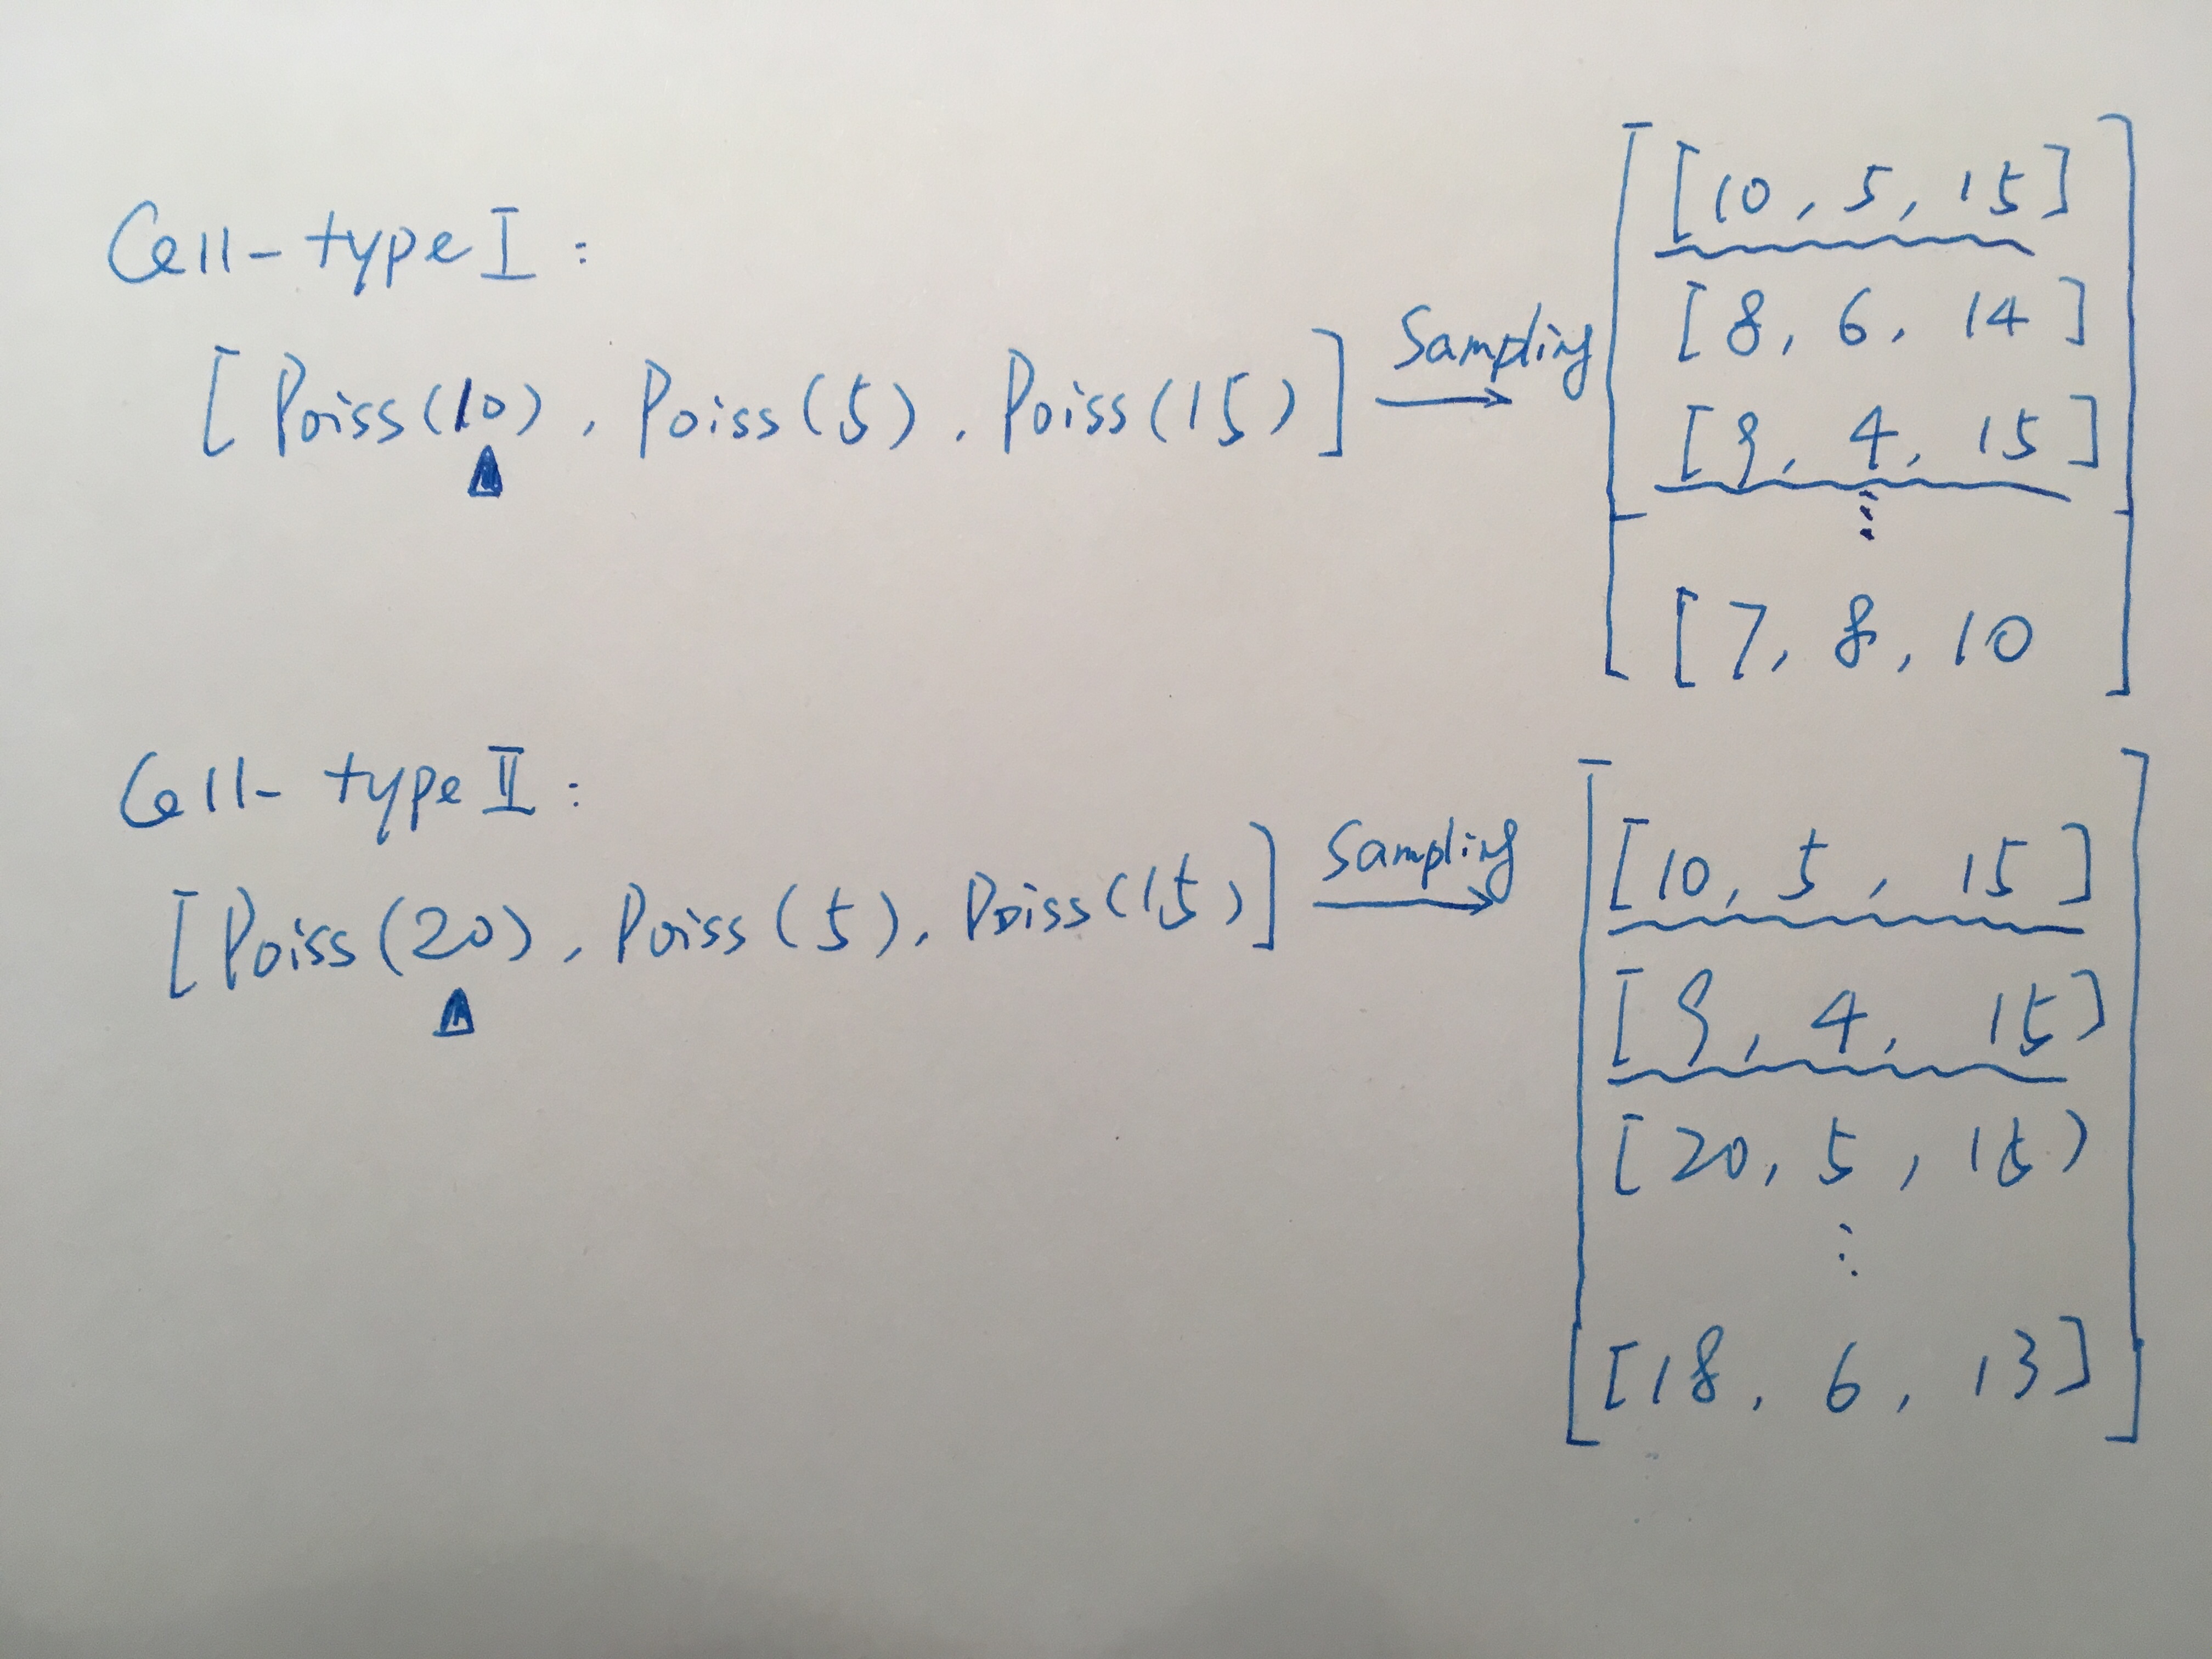 Cell-type I :
[ Poiss(10), Poiss(5), Poiss(15) ]
Sampling
[10, 5, 15]
[8, 6, 14]
[9, 4, 15]
⋮
[7, 8, 10
Cell-type II :
[Poiss(20), Poiss(5), Poiss(15)]
Sampling
[10, 5, 15]
[9, 4, 15]
[20, 5, 15)
⋮
[18, 6, 13]